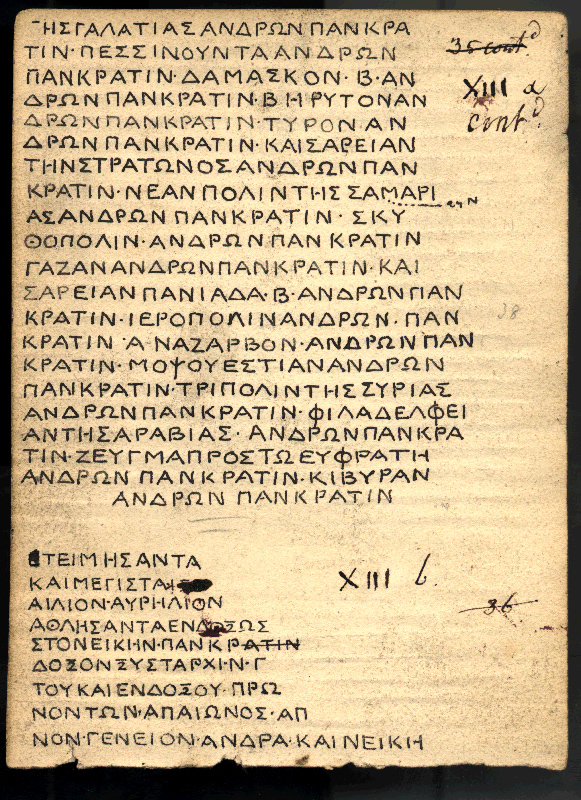 ΗΣΓΑΛΑΤΙΑΣΑΝΔΡΩΝΠΑΝΚΡΑ
ΤΙΝ·ΠΕΣΣΙΝΟΥΝΤΑΑΝΔΡΩΝ
35 contd
ΠΑΝΚΡΑΤΙΝ·ΔΑΜΑΣΚΟΝ·Β·ΑΝ
ΔΡΩΝΠΑΝΚΡΑΤΙΝ·ΒΗΡΥΤΟΝΑΝ
XIII a
contd
ΔΡΩΝΠΑΝΚΡΑΤΙΝ·ΤΥΡΟΝ·ΑΝ
ΔΡΩΝΠΑΝΚΡΑΤΙΝ·ΚΑΙΣΑΡΕΙΑΝ
ΤΗΝΣΤΡΑΤΩΝΟΣΑΝΔΡΩΝΠΑΝ
ΚΡΑΤΙΝ·ΝΕΑΝΠΟΛΙΝΤΗΣΣΑΜΑΡΙ
ΑΣΑΝΔΡΩΝΠΑΝΚΡΑΤΙΝ·ΣΚΥ
ΘΟΠΟΛΙΝ·ΑΝΔΡΩΝΠΑΝΚΡΑΤΙΝ
ΓΑΖΑΝΑΝΔΡΩΝΠΑΝΚΡΑΤΙΝ·ΚΑΙ
ΣΑΡΕΙΑΝΠΑΝΙΑΔΑ·Β·ΑΝΔΡΩΝΠΑΝ
ΚΡΑΤΙΝ·ΙΕΡΟΠΟΛΙΝΑΝΔΡΩΝ·ΠΑΝ
38
ΚΡΑΤΙΝ·ΑΝΑΖΑΡΒΟΝ·ΑΝΔΡΩΝΠΑΝ
ΚΡΑΤΙΝ·ΜΟΨΟΥΕΣΤΙΑΝΑΝΔΡΩΝ
ΠΑΝΚΡΑΤΙΝ·ΤΡΙΠΟΛΙΝΤΗΣΣΥΡΙΑΣ
ΑΝΔΡΩΝΠΑΝΚΡΑΤΙΝ·ΦΙΛΑΔΕΛΦΕΙ
ΑΝΤΗΣΑΡΑΒΙΑΣ·ΑΝΔΡΩΝΠΑΝΚΡΑ
ΤΙΝ·ΖΕΥΓΜΑΠΡΟΣΤΩΕΥΦΡΑΤΗ
ΑΝΔΡΩΝΠΑΝΚΡΑΤΙΝ·ΚΙΒΥΡΑΝ
ΑΝΔΡΩΝ ΠΑΝΚΡΑΤΙΝ
ΕΤΕΙΜΗΣΑΝΤΑ
ΚΑΙΜΕΓΙΣΤΑ
XIII b.
ΑΙΛΙΟΝ·ΑΥΡΗΛΙΟΝ
36
ΑΘΛΗΣΑΝΤΑΕΝΔΟΞΩΣ
ΣΤΟΝΕΙΚΗΝ·ΠΑΝΚΡΑΤΙΝ
ΔΟΞΟΝΞΥΣΤΑΡΧΙ·Ν·Γ
ΤΟΥΚΑΙΕΝΔΟΞΟΥ·ΠΡΩ
ΝΟΝΤΩΝ·ΑΠΑΙΩΝΟΣ·ΑΠ
ΝΟΝ·ΓΕΝΕΙΟΝ·ΑΝΔΡΑ·ΚΑΙΝΕΙΚΗ